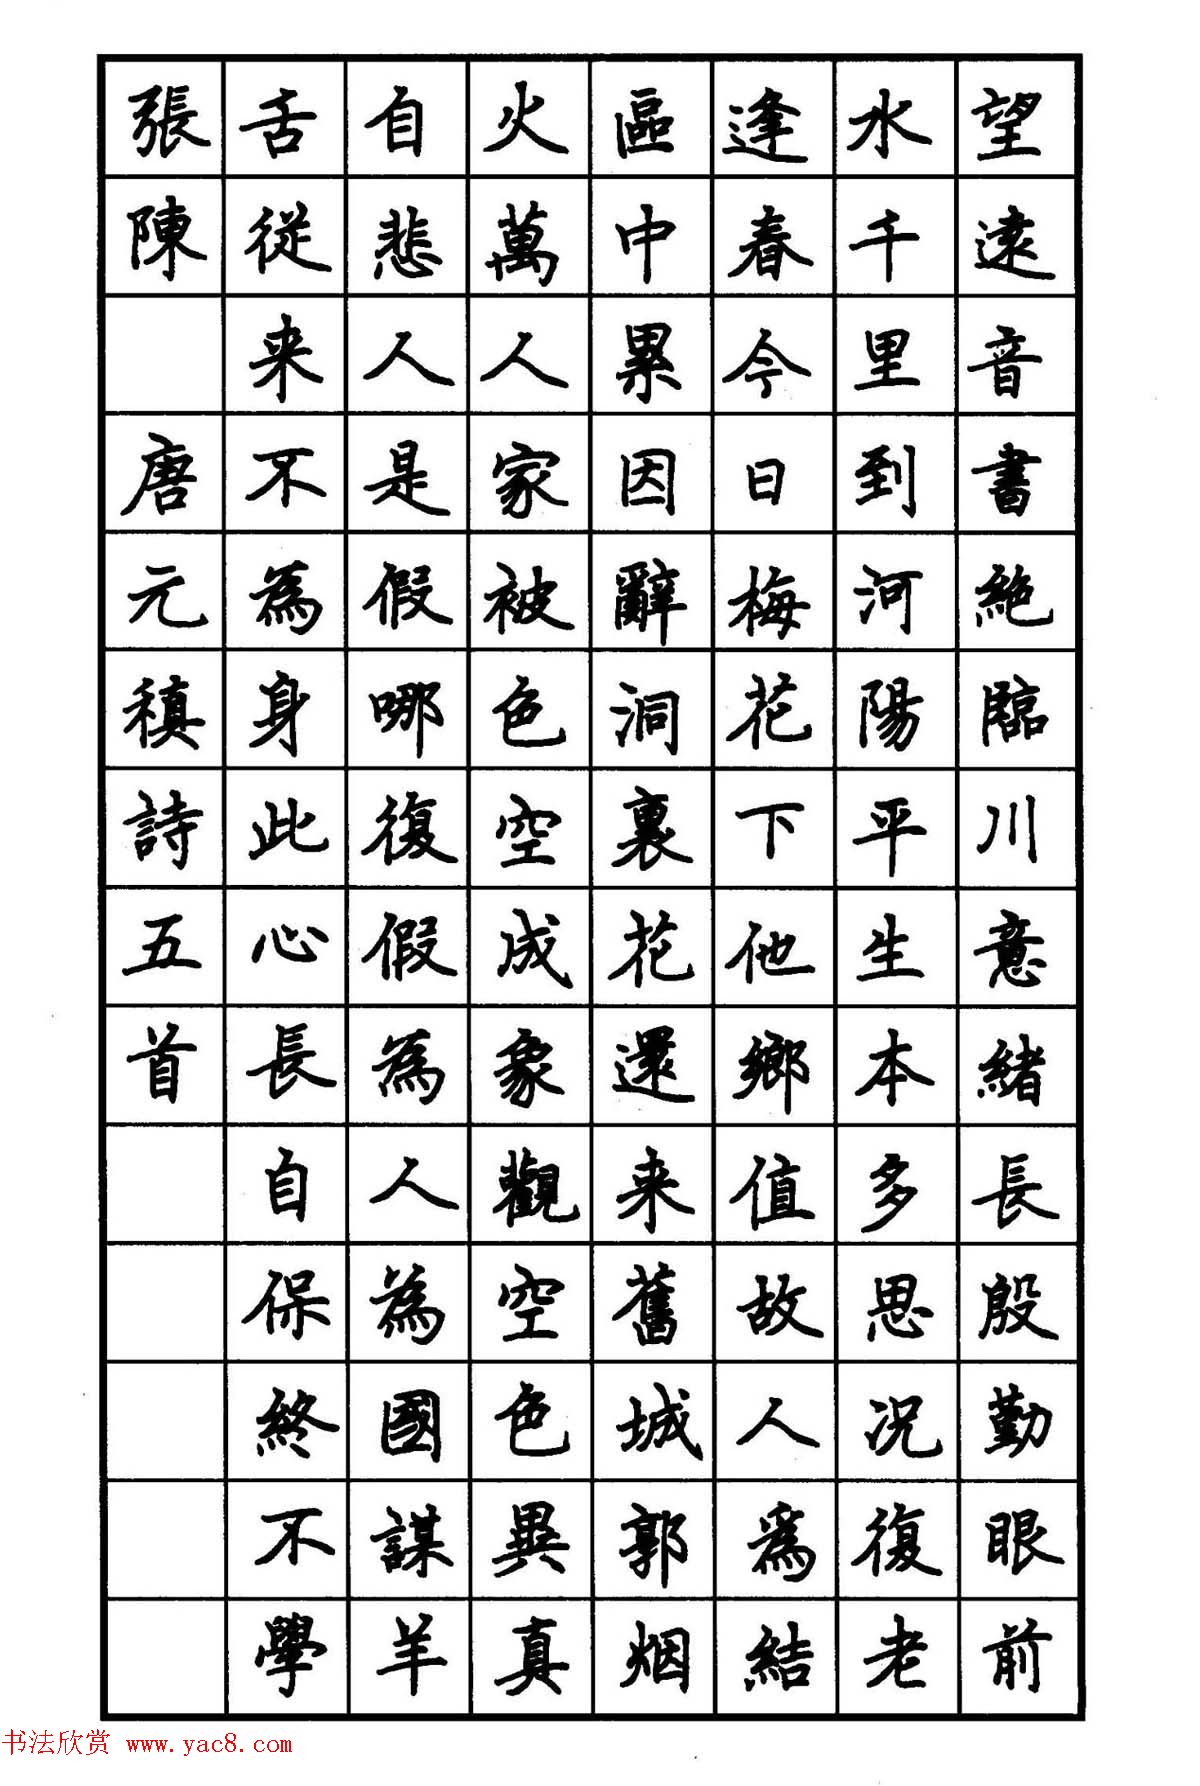 望遠音書絶臨川意緒長殷勤眼前
水千里到河陽平生本多思况復老
逢春今日梅花下他鄉值故人為結
區中累因辭洞裏花還来舊城郭烟
火萬人家被色空成象觀空色異真
自悲人是假哪復假為人為國謀羊
舌從来不為身此心長自保終不學
張陳 唐元稹詩五首
书法欣赏 www.yac8.com